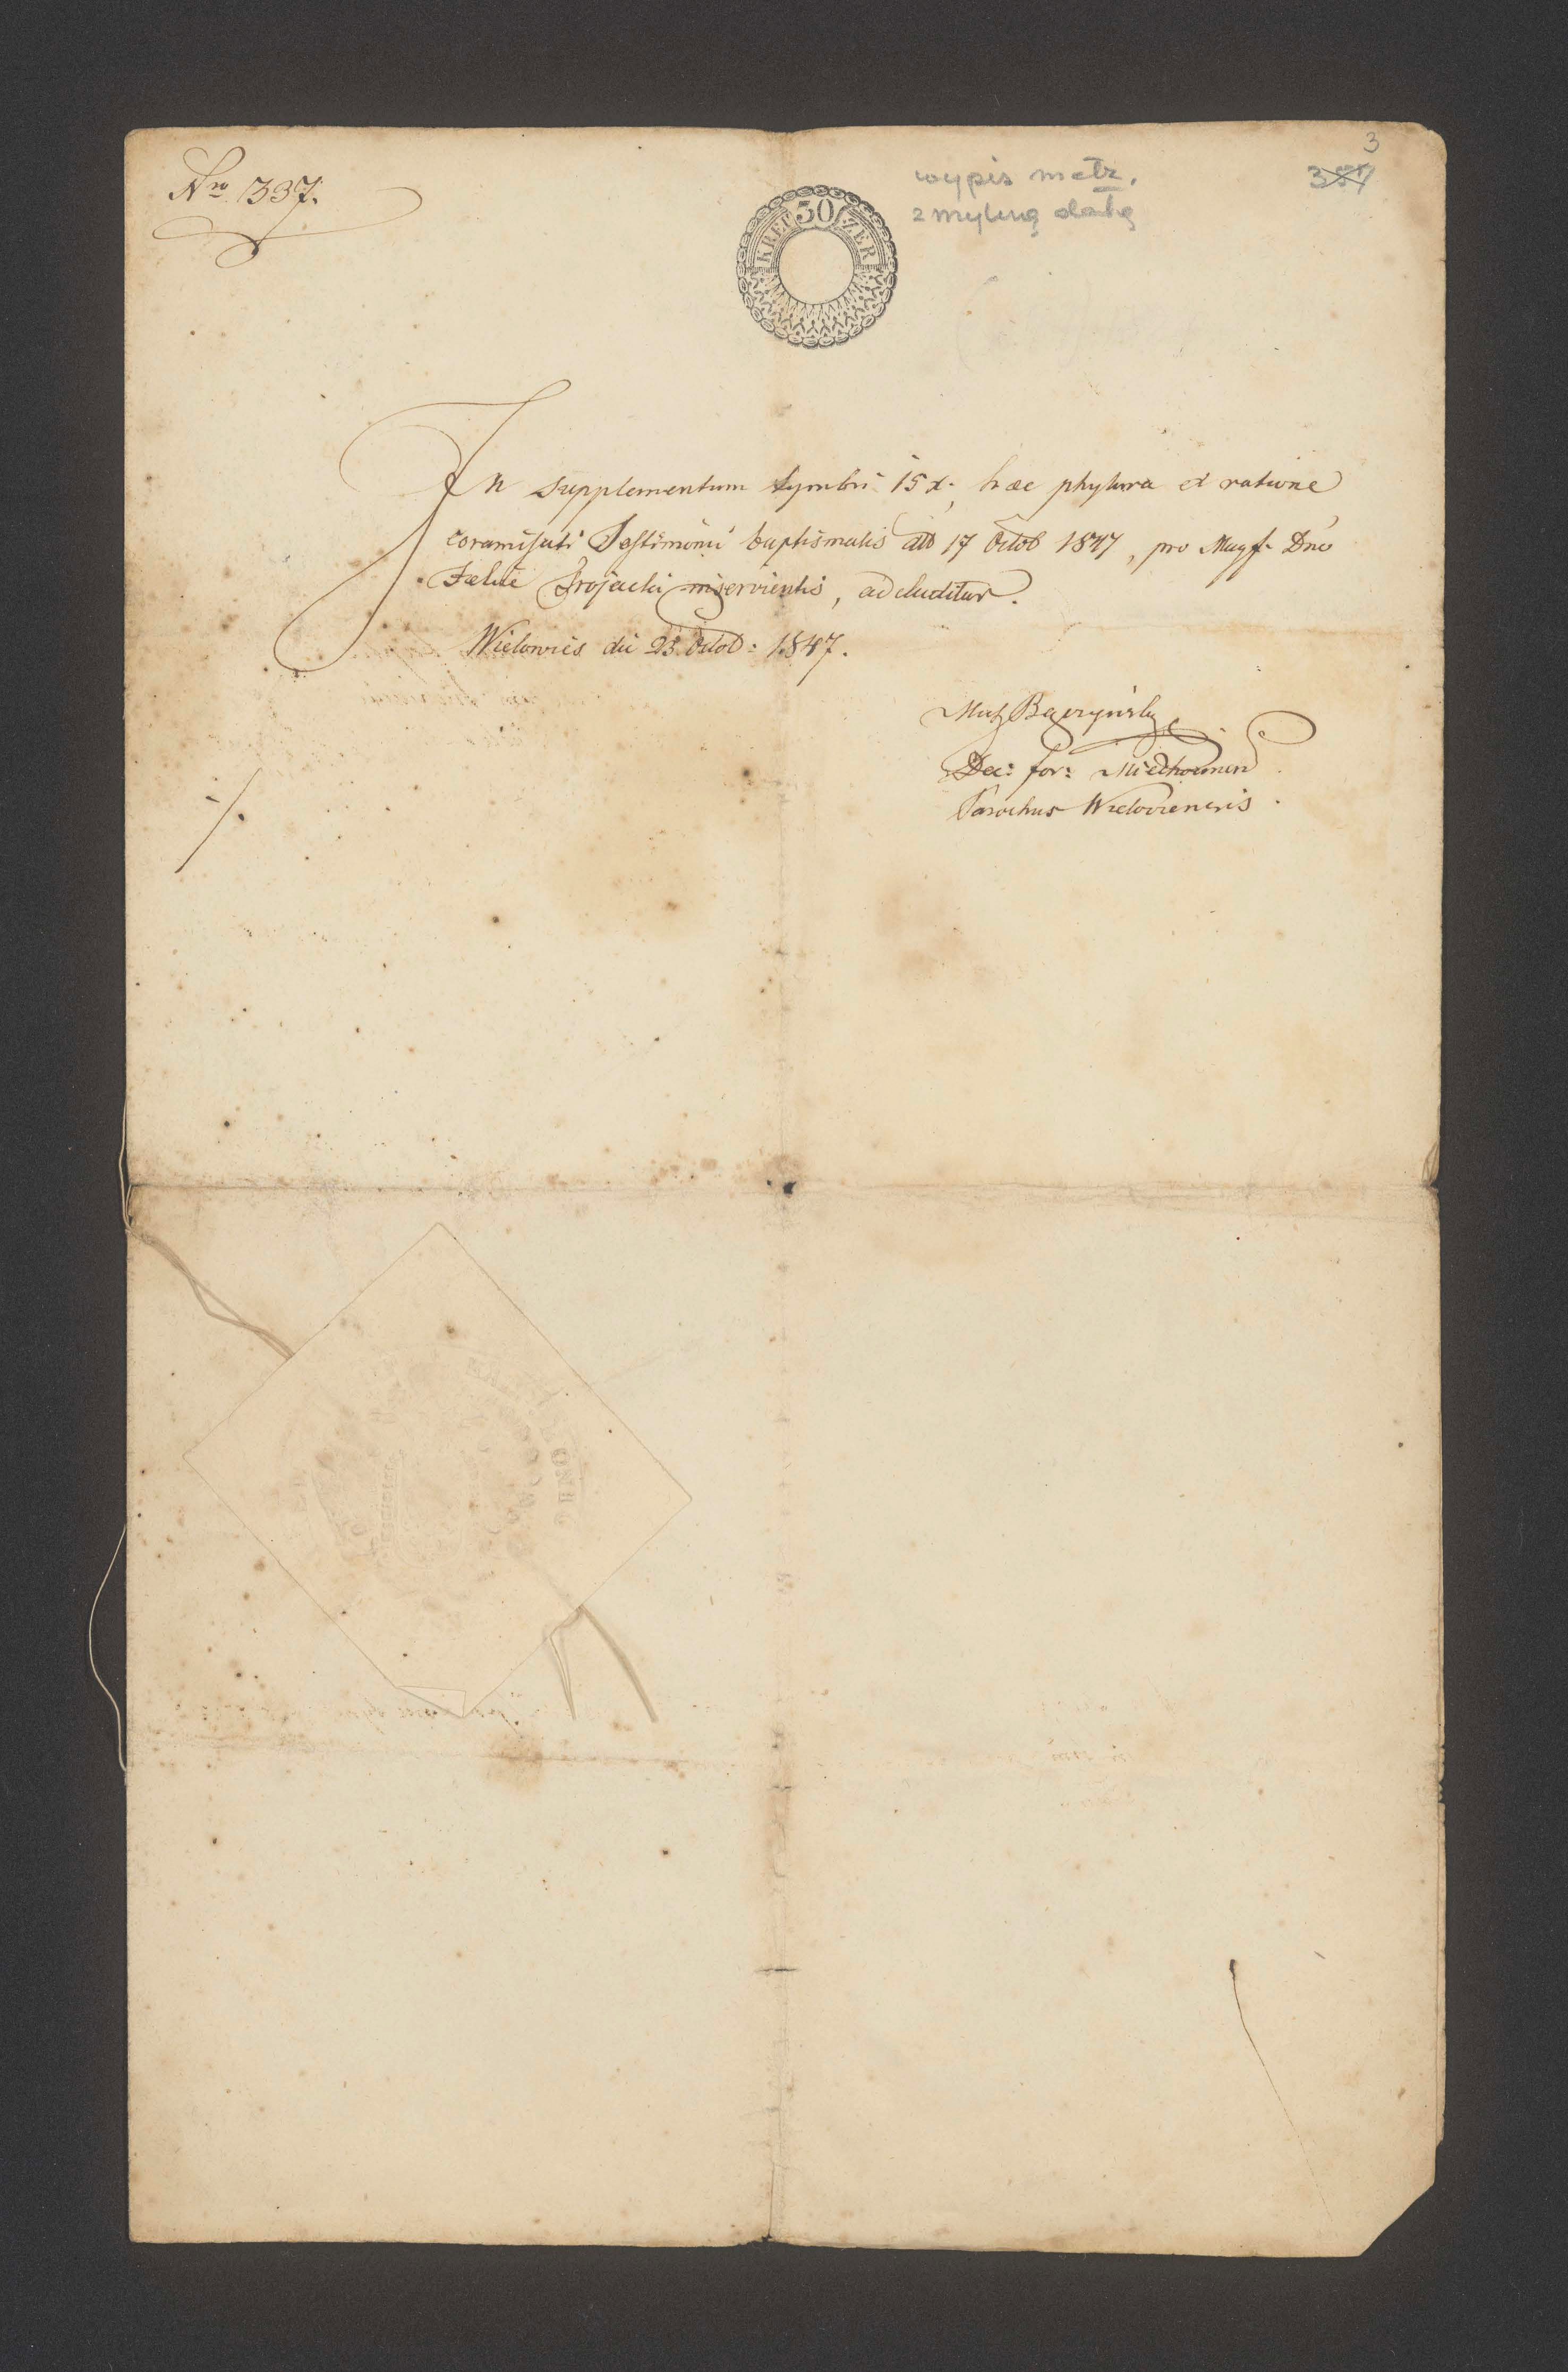 Nro 337.
3
357
wypis metr.
z mylną datą
30
KREUZER
In Supplementum Symbri 15 x. hae phylura et ratione
coramisati Testimonii baptismalis dto 17 Octob 1847, pro Magf. Dno
Faelice Trojacki inservientis, adcluditur.
Wielowies die 23 Octob: 1847.
Dec: for: Miechocinen
Parochus Wieloviensis.